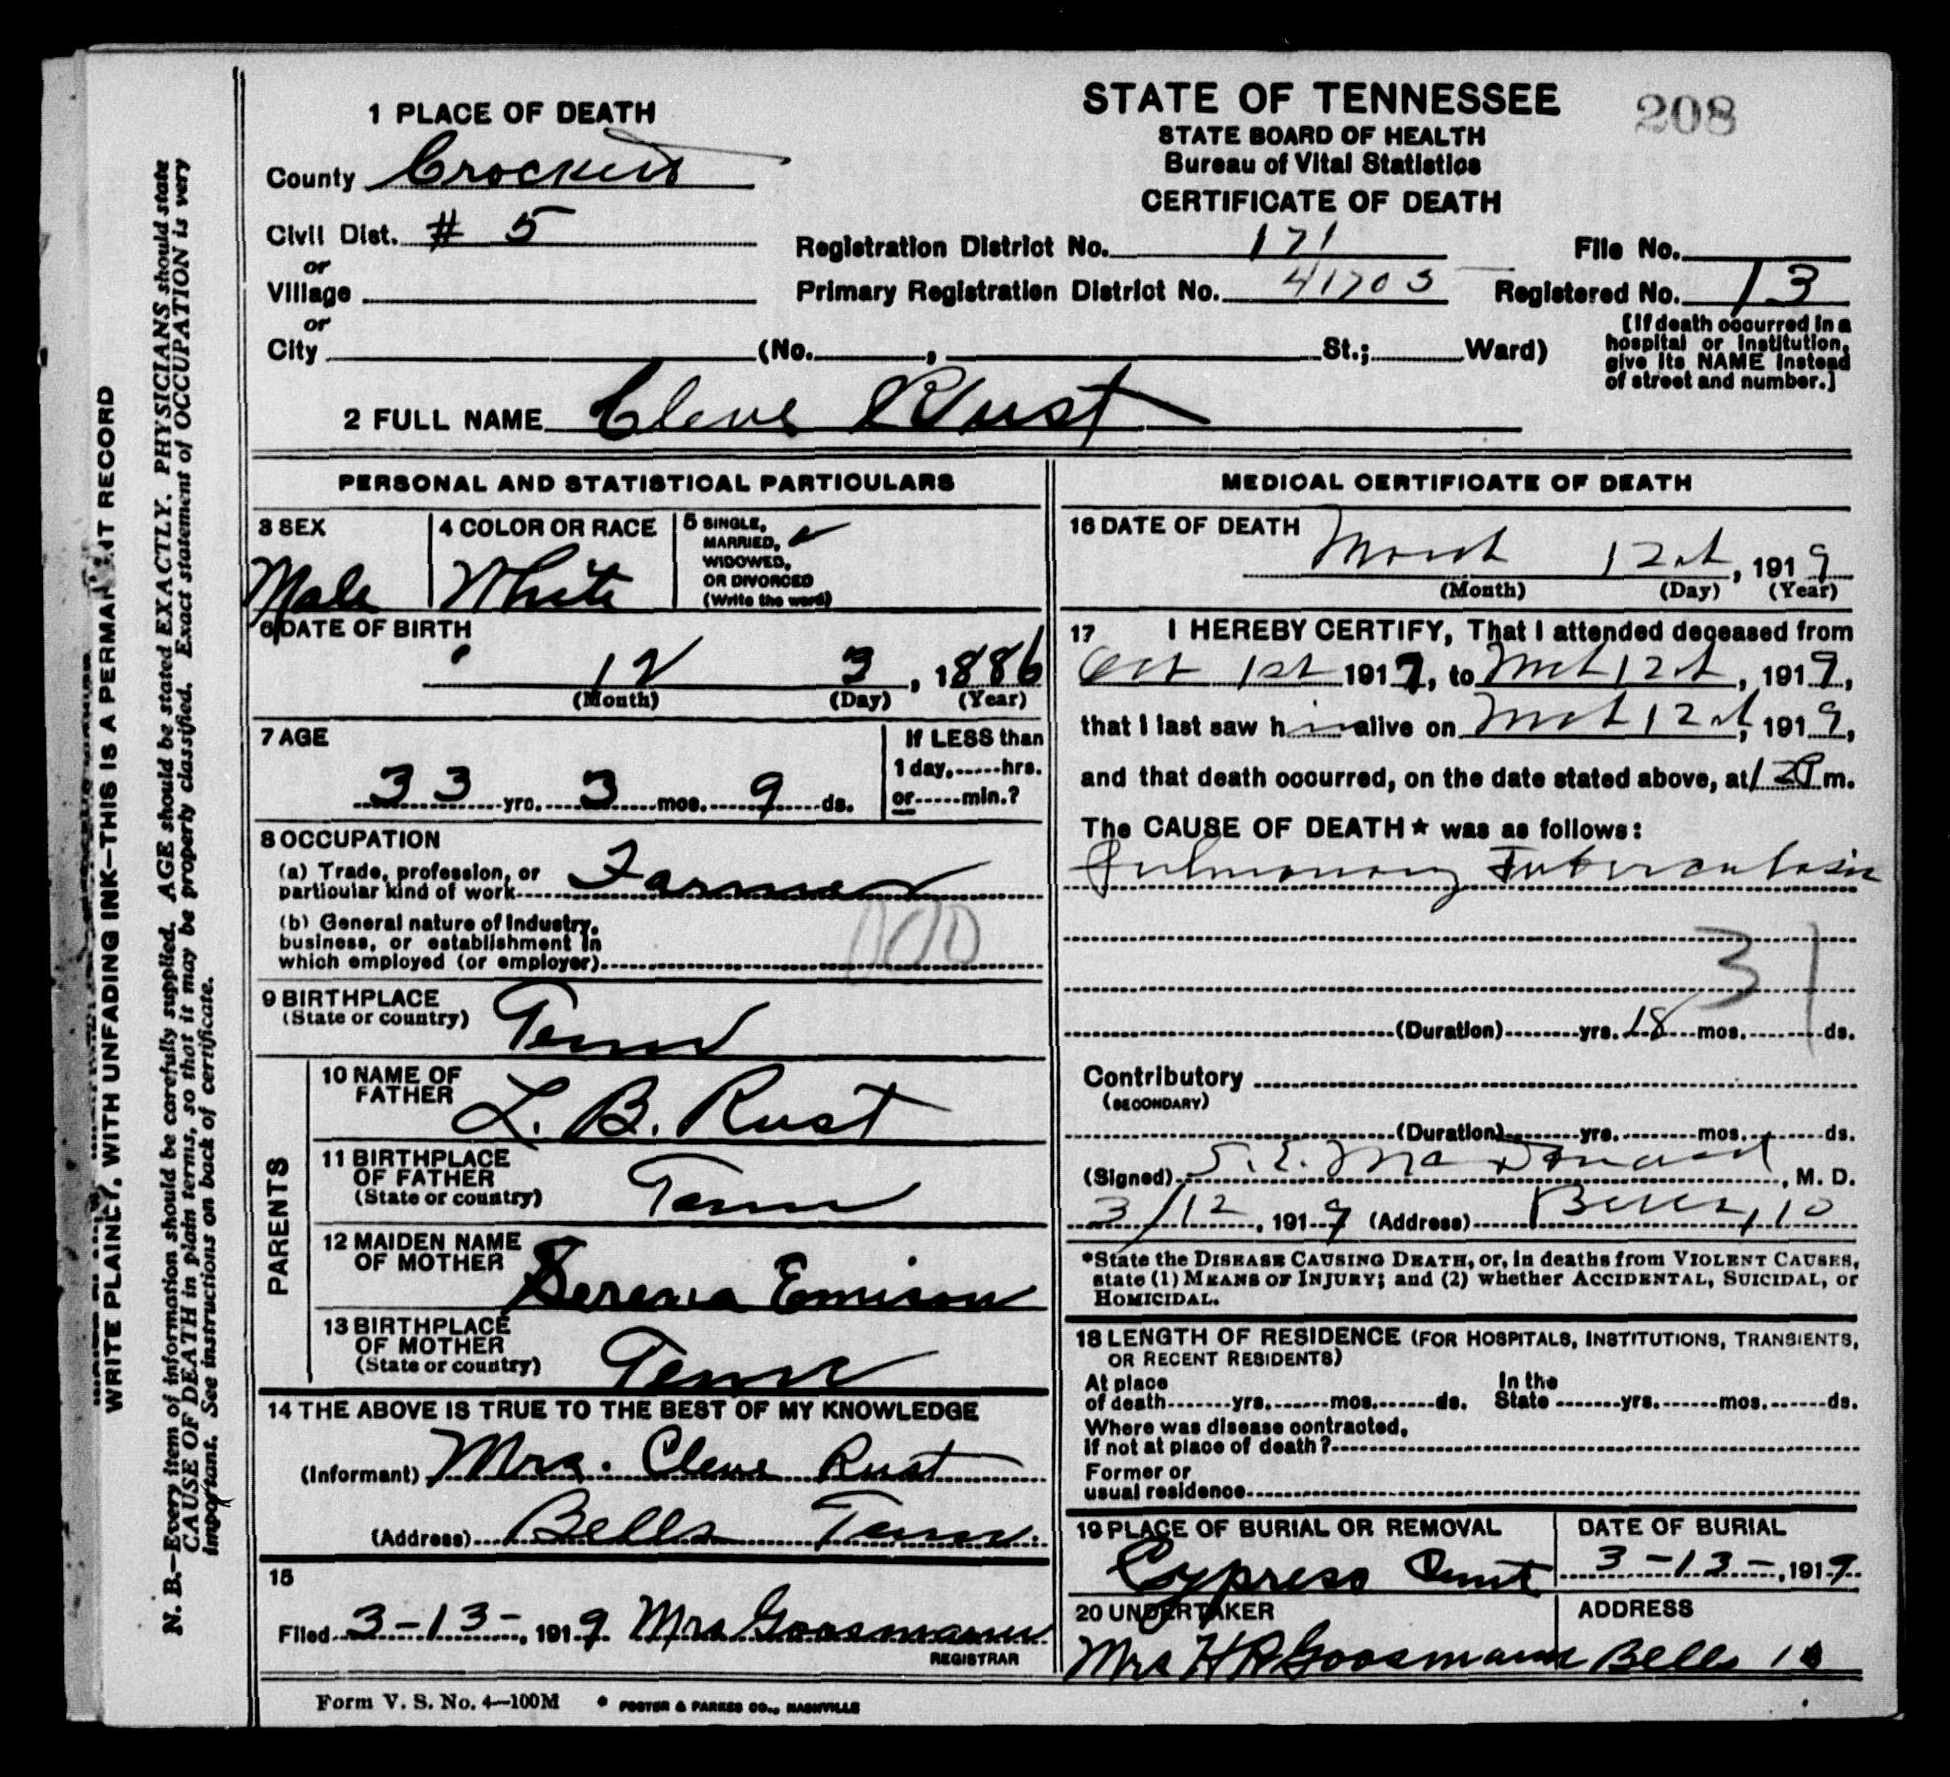 1 PLACE OF DEATH
County Crockett
Civil Dist. # 5
or
Village
or
City (No. , St.; Ward)
STATE OF TENNESSEE
STATE BOARD OF HEALTH
Bureau of Vital Statistics
CERTIFICATE OF DEATH
208
Registration District No. 171 File No.
Primary Registration District No. 41703 Registered No. 13
[If death occurred in a
hospital or institution,
give its NAME instead
of street and number.]
2 FULL NAME Cleve Rust
PERSONAL AND STATISTICAL PARTICULARS
3 SEX
Male
4 COLOR OR RACE
White
5 SINGLE,
MARRIED,
WIDOWED,
OR DIVORCED
(Write the word)
6 DATE OF BIRTH
12 3, 1886
(Month) (Day) (Year)
7 AGE
33 yrs. 3 mos. 9 ds.
If LESS than
1 day, hrs.
or min.?
8 OCCUPATION
(a) Trade, profession, or
particular kind of work Farmer
(b) General nature of industry,
business, or establishment in
which employed (or employer)
000
9 BIRTHPLACE
(State or country) Tenn
PARENTS
10 NAME OF
FATHER L. B. Rust
11 BIRTHPLACE
OF FATHER
(State or country) Tenn
12 MAIDEN NAME
OF MOTHER Serena Emison
13 BIRTHPLACE
OF MOTHER
(State or country) Tenn
14 THE ABOVE IS TRUE TO THE BEST OF MY KNOWLEDGE
(Informant) Mrs. Cleve Rust
(Address) Bells Tenn.
15
Filed 3-13-, 1919 Mrs Goosmann
REGISTRAR
MEDICAL CERTIFICATE OF DEATH
16 DATE OF DEATH
March 12th, 1919
(Month) (Day) (Year)
17 I HEREBY CERTIFY, That I attended deceased from
Oct 1st 1917, to Mch 12th, 1919,
that I last saw him alive on Mch 12th, 1919,
and that death occurred, on the date stated above, at m.
The CAUSE OF DEATH* was as follows:
Pulmonary Tuberculosis
31
(Duration) yrs. 18 mos. ds.
Contributory
(SECONDARY)
(Duration) yrs. mos. ds.
(Signed) S. E. McDonald, M. D.
3/12, 1919 (Address) Bells,
*State the DISEASE CAUSING DEATH, or, in deaths from VIOLENT CAUSES,
state (1) MEANS OF INJURY; and (2) whether ACCIDENTAL, SUICIDAL, or
HOMICIDAL.
18 LENGTH OF RESIDENCE (FOR HOSPITALS, INSTITUTIONS, TRANSIENTS,
OR RECENT RESIDENTS)
At place In the
of death yrs. mos. ds. State yrs. mos. ds.
Where was disease contracted,
if not at place of death?
Former or
usual residence
19 PLACE OF BURIAL OR REMOVAL
Cypress Cemt
DATE OF BURIAL
3-13-, 1919
20 UNDERTAKER
Mrs H R Goosmann
ADDRESS
Bells
Form V. S. No. 4—100M • FOSTER & PARKES CO., NASHVILLE
WRITE PLAINLY, WITH UNFADING INK—THIS IS A PERMANENT RECORD
N. B.—Every item of information should be carefully supplied. AGE should be stated EXACTLY. PHYSICIANS should state
CAUSE OF DEATH in plain terms, so that it may be properly classified. Exact statement of OCCUPATION is very
important. See instructions on back of certificate.